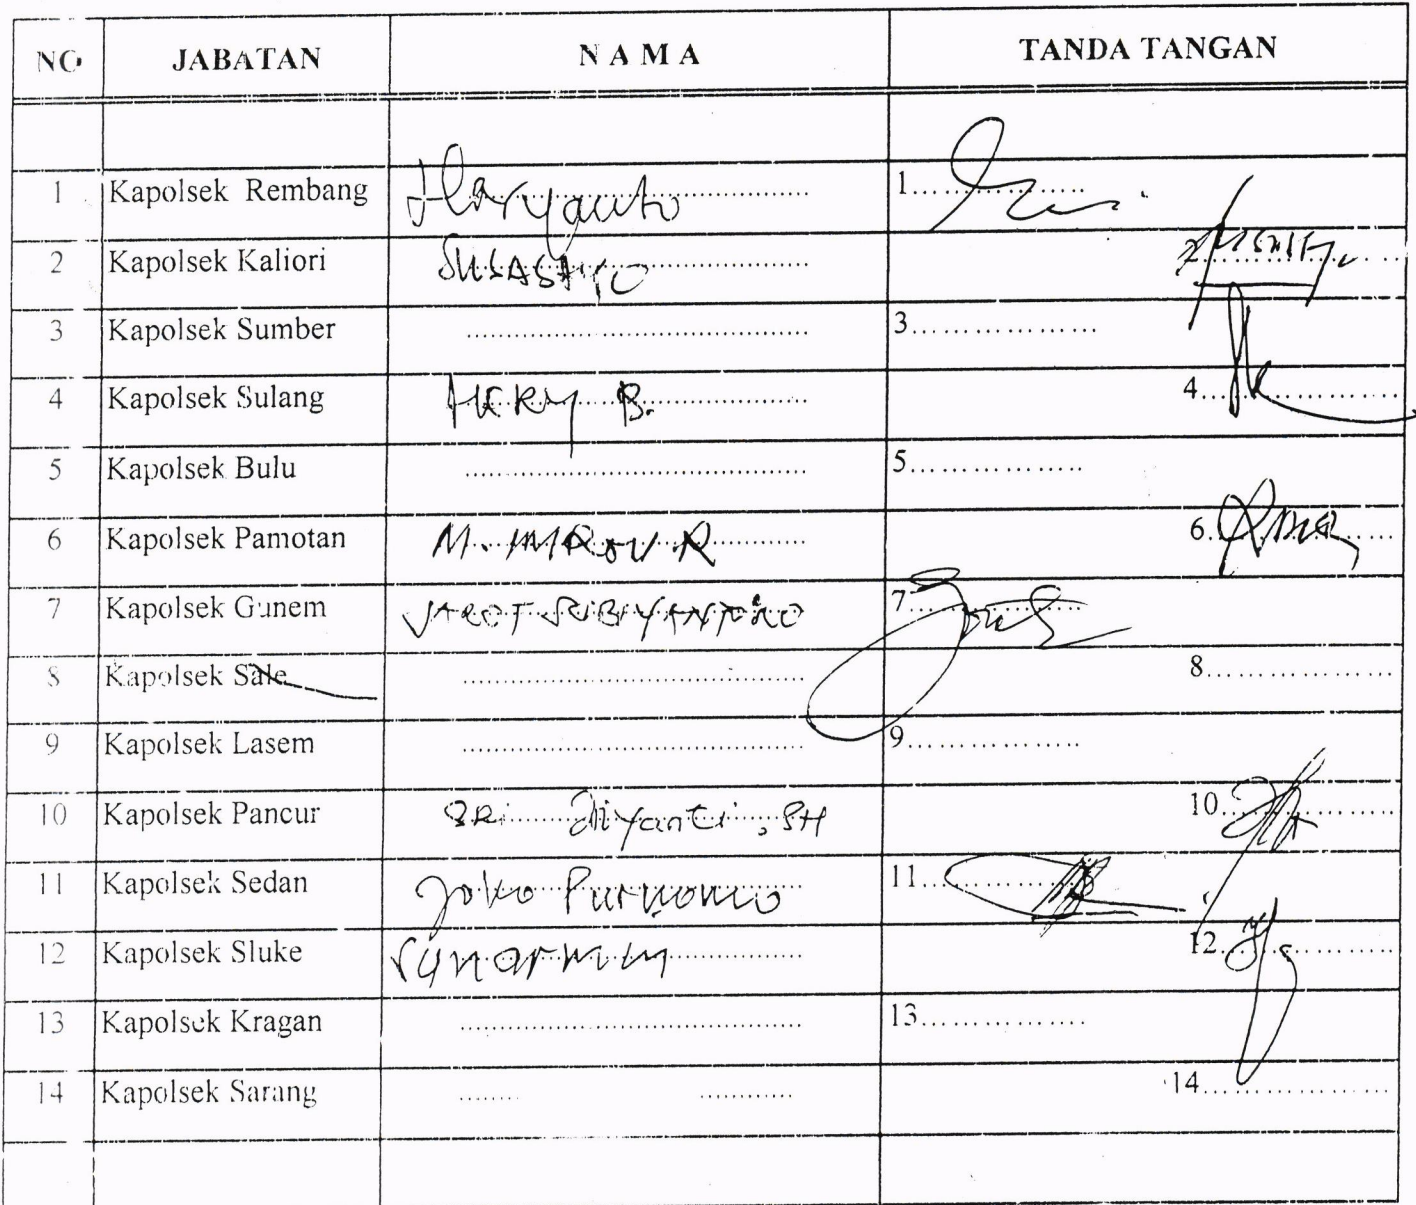 NO JABATAN N A M A TANDA TANGAN
1 Kapolsek Rembang Haryanto 1
2 Kapolsek Kaliori 2
3 Kapolsek Sumber 3
4 Kapolsek Sulang HERY B. 4
5 Kapolsek Bulu 5
6 Kapolsek Pamotan M. IMRON R 6
7 Kapolsek Gunem JAROT 7
8 Kapolsek Sale 8
9 Kapolsek Lasem 9
10 Kapolsek Pancur SRi , SH 10
11 Kapolsek Sedan Joko Purnomo 11
12 Kapolsek Sluke Sunarmin 12
13 Kapolsek Kragan 13
14 Kapolsek Sarang 14